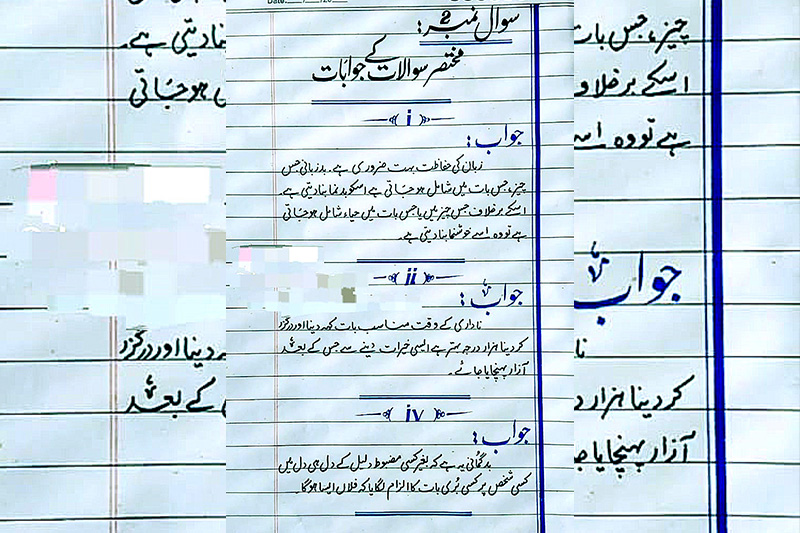 سوال نمبر 2:
مختصر سوالات کے جوابات
i
جواب:
زبان کی حفاظت بہت ضروری ہے۔ بدزبانی جس
چیز، جس بات میں شامل ہوجاتی ہے اسکو بدنما بنا دیتی ہے۔
اسکے برخلاف جس چیز میں یا جس بات میں حیاء شامل ہوجاتی
ہے تو وہ اسے خوشنما بنا دیتی ہے۔
ii
جواب:
ناداری کے وقت مناسب بات کہہ دینا اور درگزر
کر دینا ہزار درجہ بہتر ہے ایسی خیرات دینے سے جس کے بعد
آزار پہنچایا جائے۔
iv
جواب:
بدگمانی یہ ہے کہ بغیر کسی مضبوط دلیل کے دل ہی دل میں
کسی شخص پر کسی بُری بات کا الزام لگایا کہ فلاں ایسا ہوگا۔
چیز، جس بات
نا دیتی ہے۔
اسکے برخلاف
ہوجاتی
ہے تو وہ اسے
جواب
نا
دینا اور درگزر
کر دینا ہزار د
کے بعد
آزار پہنچایا جا